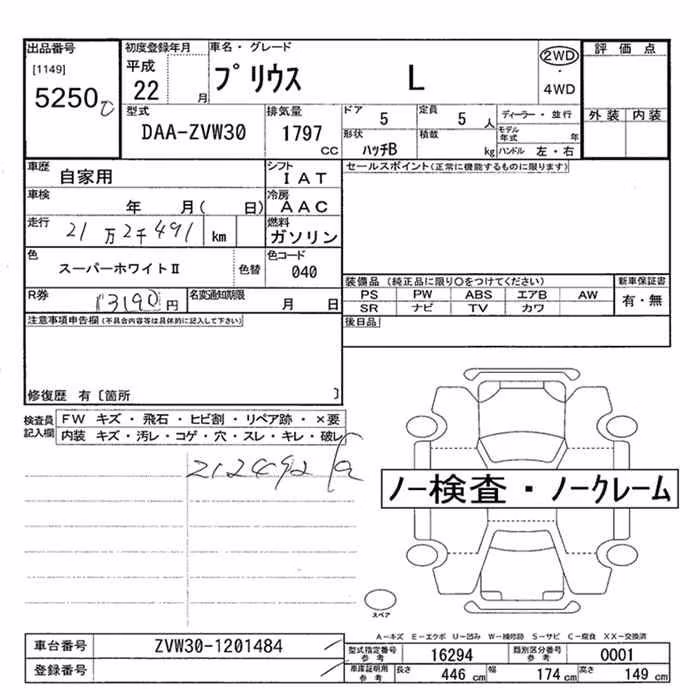 出品番号 初度登録年月 車名・グレード 2WD 評価点
[1149] 平成 プリウス L ・
5250 22 月 4WD 外装 内装
型式 排気量 ドア 5 定員 5人 ディーラー・並行
DAA-ZVW30 1797 cc 形状 ハッチB 積載 kg モデル年式 年
ハンドル 左・右
車歴 自家用 シフト IAT セールスポイント(正常に機能するものに限ります)
車検 年 月( 日) 冷房 AAC
走行 21万2千491 km 燃料 ガソリン
色 スーパーホワイトⅡ 色替 色コード 040
装備品(純正品に限り○をつけてください) 新車保証書
PS PW ABS エアB AW 有・無
SR ナビ TV カワ
R券 13190円 名変通知期限 月 日 後日品
注意事項申告欄(不具合内容等は具体的に記入して下さい)
修復歴 有〔箇所 〕
検査員 FW キズ・飛石・ヒビ割・リペア跡・×要
記入欄 内装 キズ・汚レ・コゲ・穴・スレ・キレ・破レ
212492
ノー検査・ノークレーム
スペア
A-キズ E-エクボ U-凹み W-補修跡 S-サビ C-腐食 XX-交換済
車台番号 ZVW30-1201484
型式指定番号 参考 16294 類別区分番号 参考 0001
登録番号
車庫証明用 参考 長さ 446cm 幅 174cm 高さ 149cm